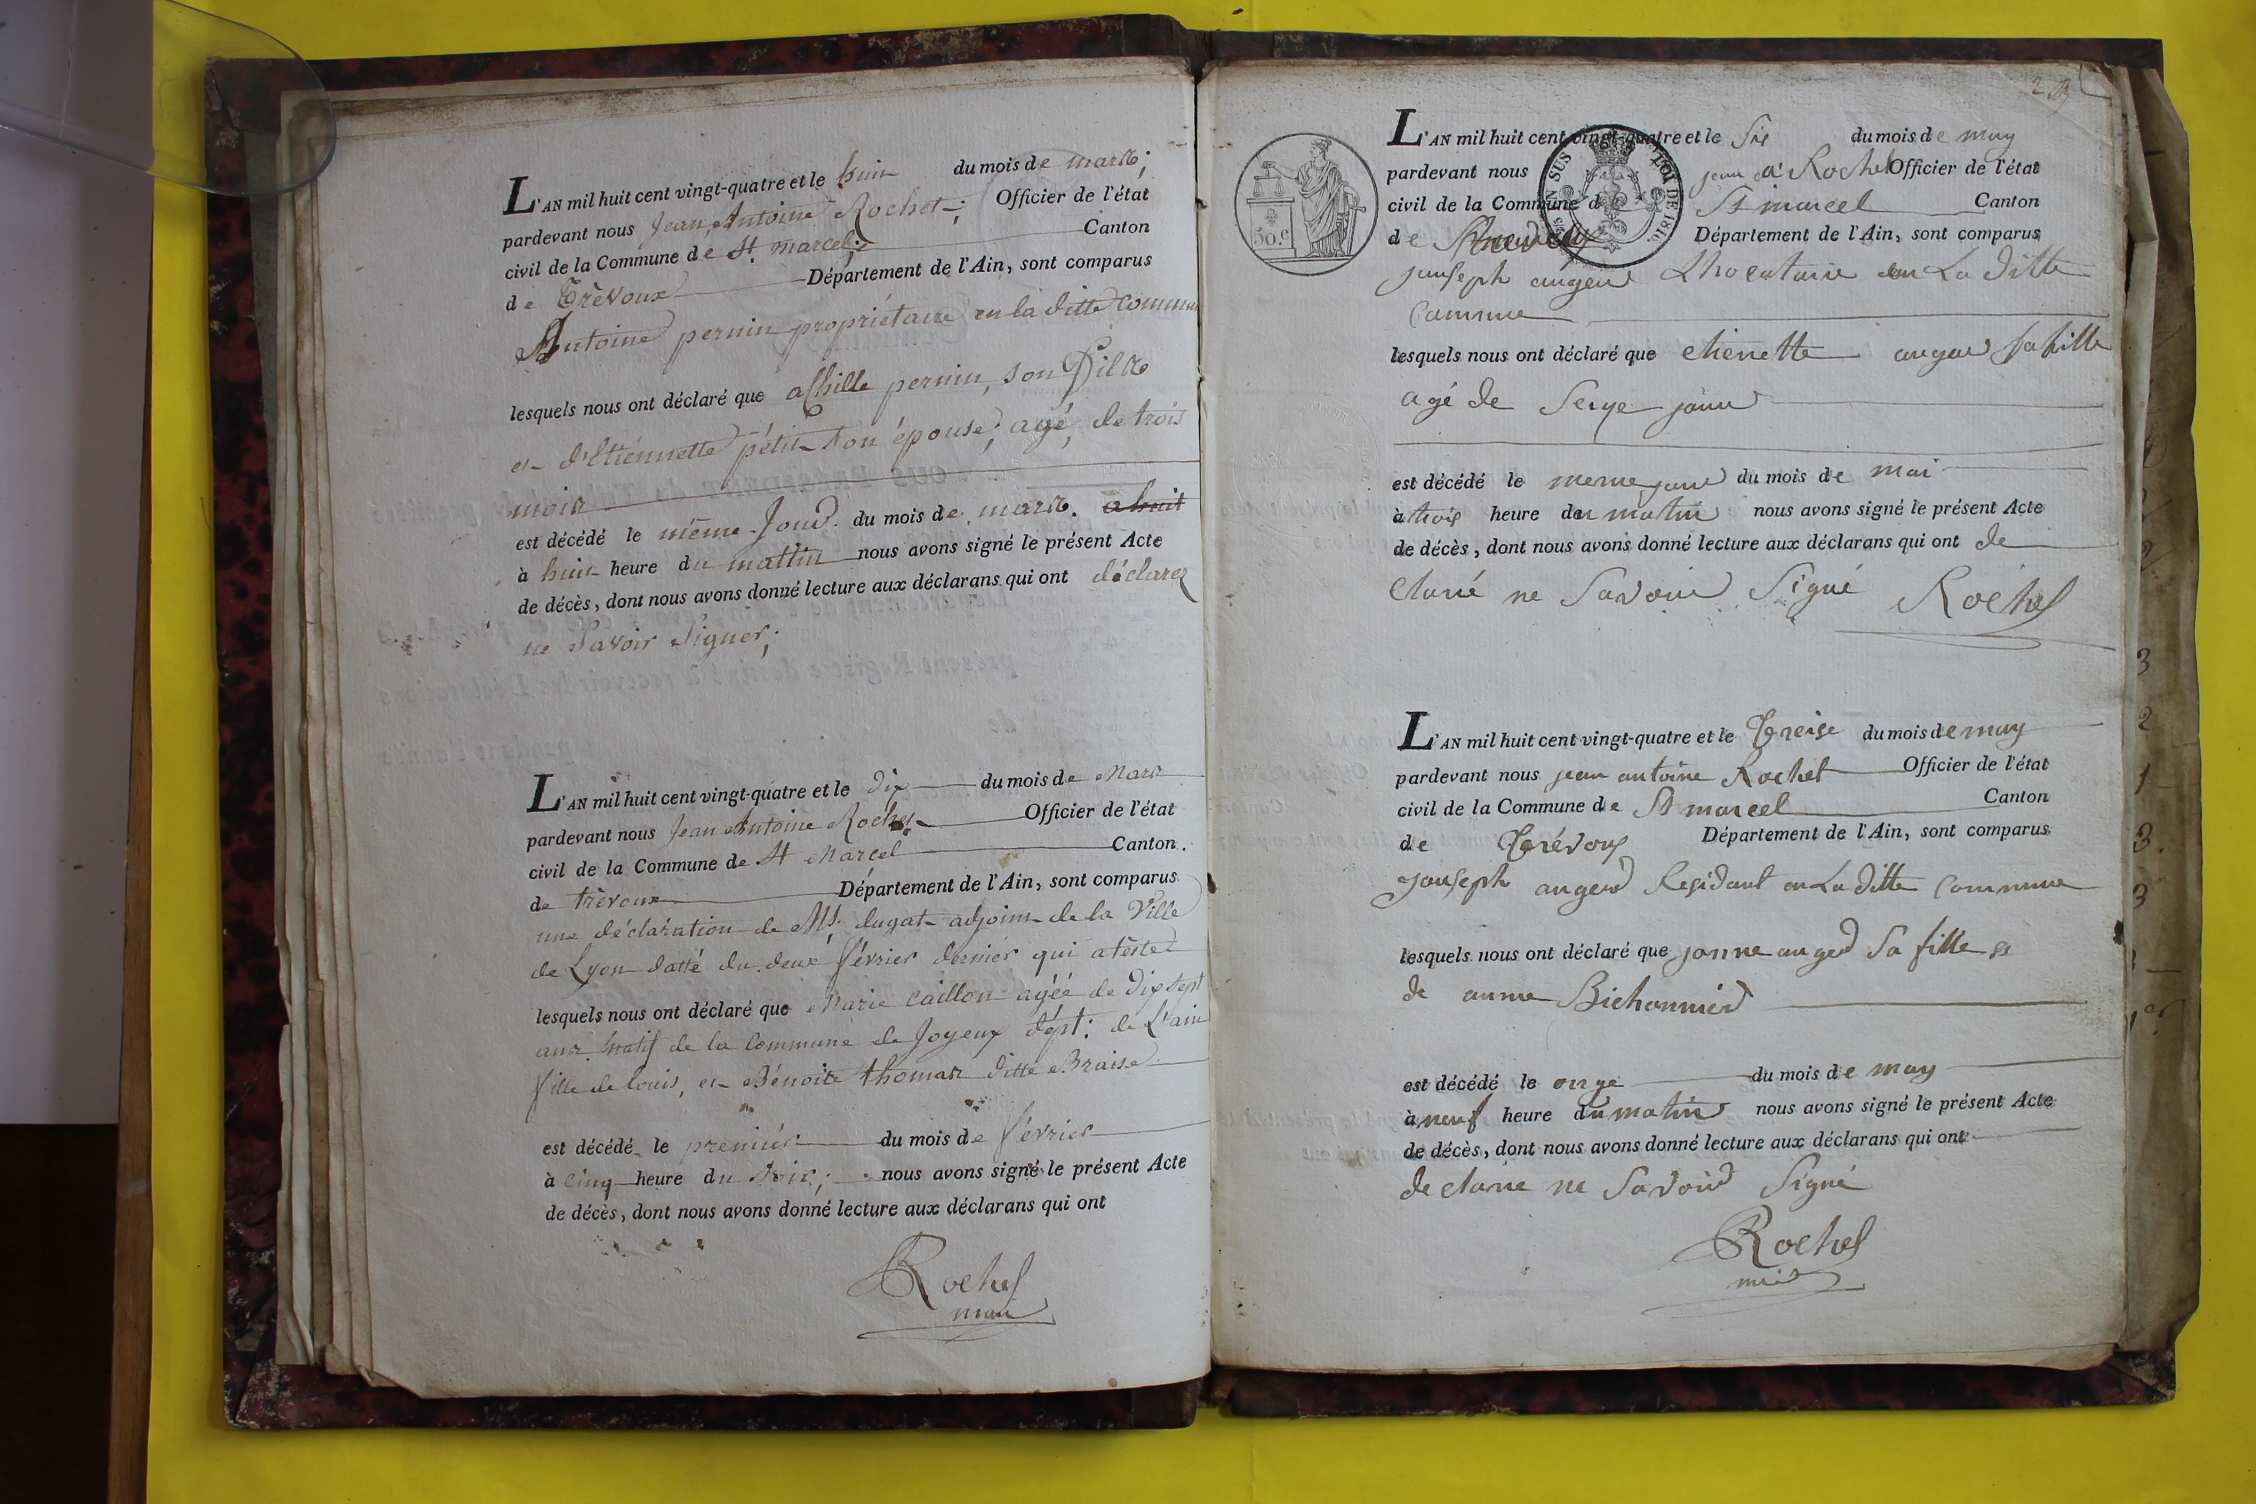 L'AN mil huit cent vingt-quatre et le huit du mois de mars;
pardevant nous Jean Antoine Rochet; Officier de l'état
civil de la Commune de St. marcel; Canton
de Trèvoux Département de l'Ain, sont comparus
Antoine pernin propriétaire en la ditte commune
lesquels nous ont déclaré que achille pernin, son fils
et d'Etiennette petit son épouse, agé, de trois
mois
est décédé le même Jour. du mois de mars. a huit
à huit heure du mattin nous avons signé le présent Acte
de décès, dont nous avons donné lecture aux déclarans qui ont déclarez
ne Savoir Signer;
L'AN mil huit cent vingt-quatre et le dix du mois de Mars
pardevant nous Jean Antoine Rochet Officier de l'état
civil de la Commune de St Marcel Canton.
de trèvoux Département de l'Ain, sont comparus
une déclaration de Mr. dugat adjoint de la Ville
de Lyon datté du deux février dernier qui atèste
lesquels nous ont déclaré que Marie Caillon agéé de dix sept
ans natif de la Commune de Joyeux dépt: de L'ain
fille de louis, et Bénoite thomas ditte Braise
est décédé le premier du mois de février
à cinq heure du soir; nous avons signé le présent Acte
de décès, dont nous avons donné lecture aux déclarans qui ont
Rochet
mair
2
50.c
EN SUS
LOI DE 1816.
L'AN mil huit cent vingt-quatre et le Six du mois de may
pardevant nous jean a Rochet Officier de l'état
civil de la Commune de St marcel Canton
de Département de l'Ain, sont comparus
jouseph anger Lhocatarie en La ditte
Commue
lesquels nous ont déclaré que etienette anger sa fille
agé de Seize jour
est décédé le meme jour du mois de mai
à trois heure du matin nous avons signé le présent Acte
de décès, dont nous avons donné lecture aux déclarans qui ont de
clarié ne Savoir Signé Rochet
L'AN mil huit cent vingt-quatre et le Treise du mois de may
pardevant nous jean antoine Rochet Officier de l'état
civil de la Commune de St marcel Canton
de Trévoux Département de l'Ain, sont comparus
jouseph anger Residant en La ditte Commune
lesquels nous ont déclaré que janne anger Sa fille et
de anne Bichonnier
est décédé le onze du mois de may
à neuf heure du matin nous avons signé le présent Acte
de décès, dont nous avons donné lecture aux déclarans qui ont
declarie ne Savoir Signé
Rochet
mair